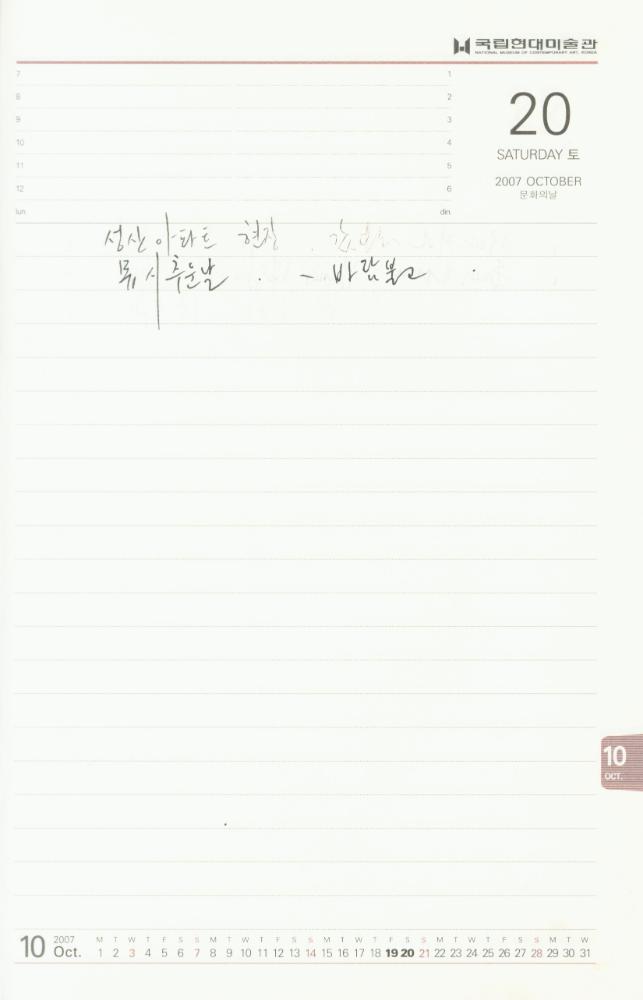 국립현대미술관
NATIONAL MUSEUM OF CONTEMPORARY ART, KOREA
7 1
8 2
9 3
10 4
11 5
12 6
lun din
20
SATURDAY 토
2007 OCTOBER
문화의날
성산 아파트 현장
추운날 - 바람불고
10
OCT.
10 2007 Oct.
M T W T F S S M T W T F S S M T W T F S S M T W T F S S M T W
1 2 3 4 5 6 7 8 9 10 11 12 13 14 15 16 17 18 19 20 21 22 23 24 25 26 27 28 29 30 31